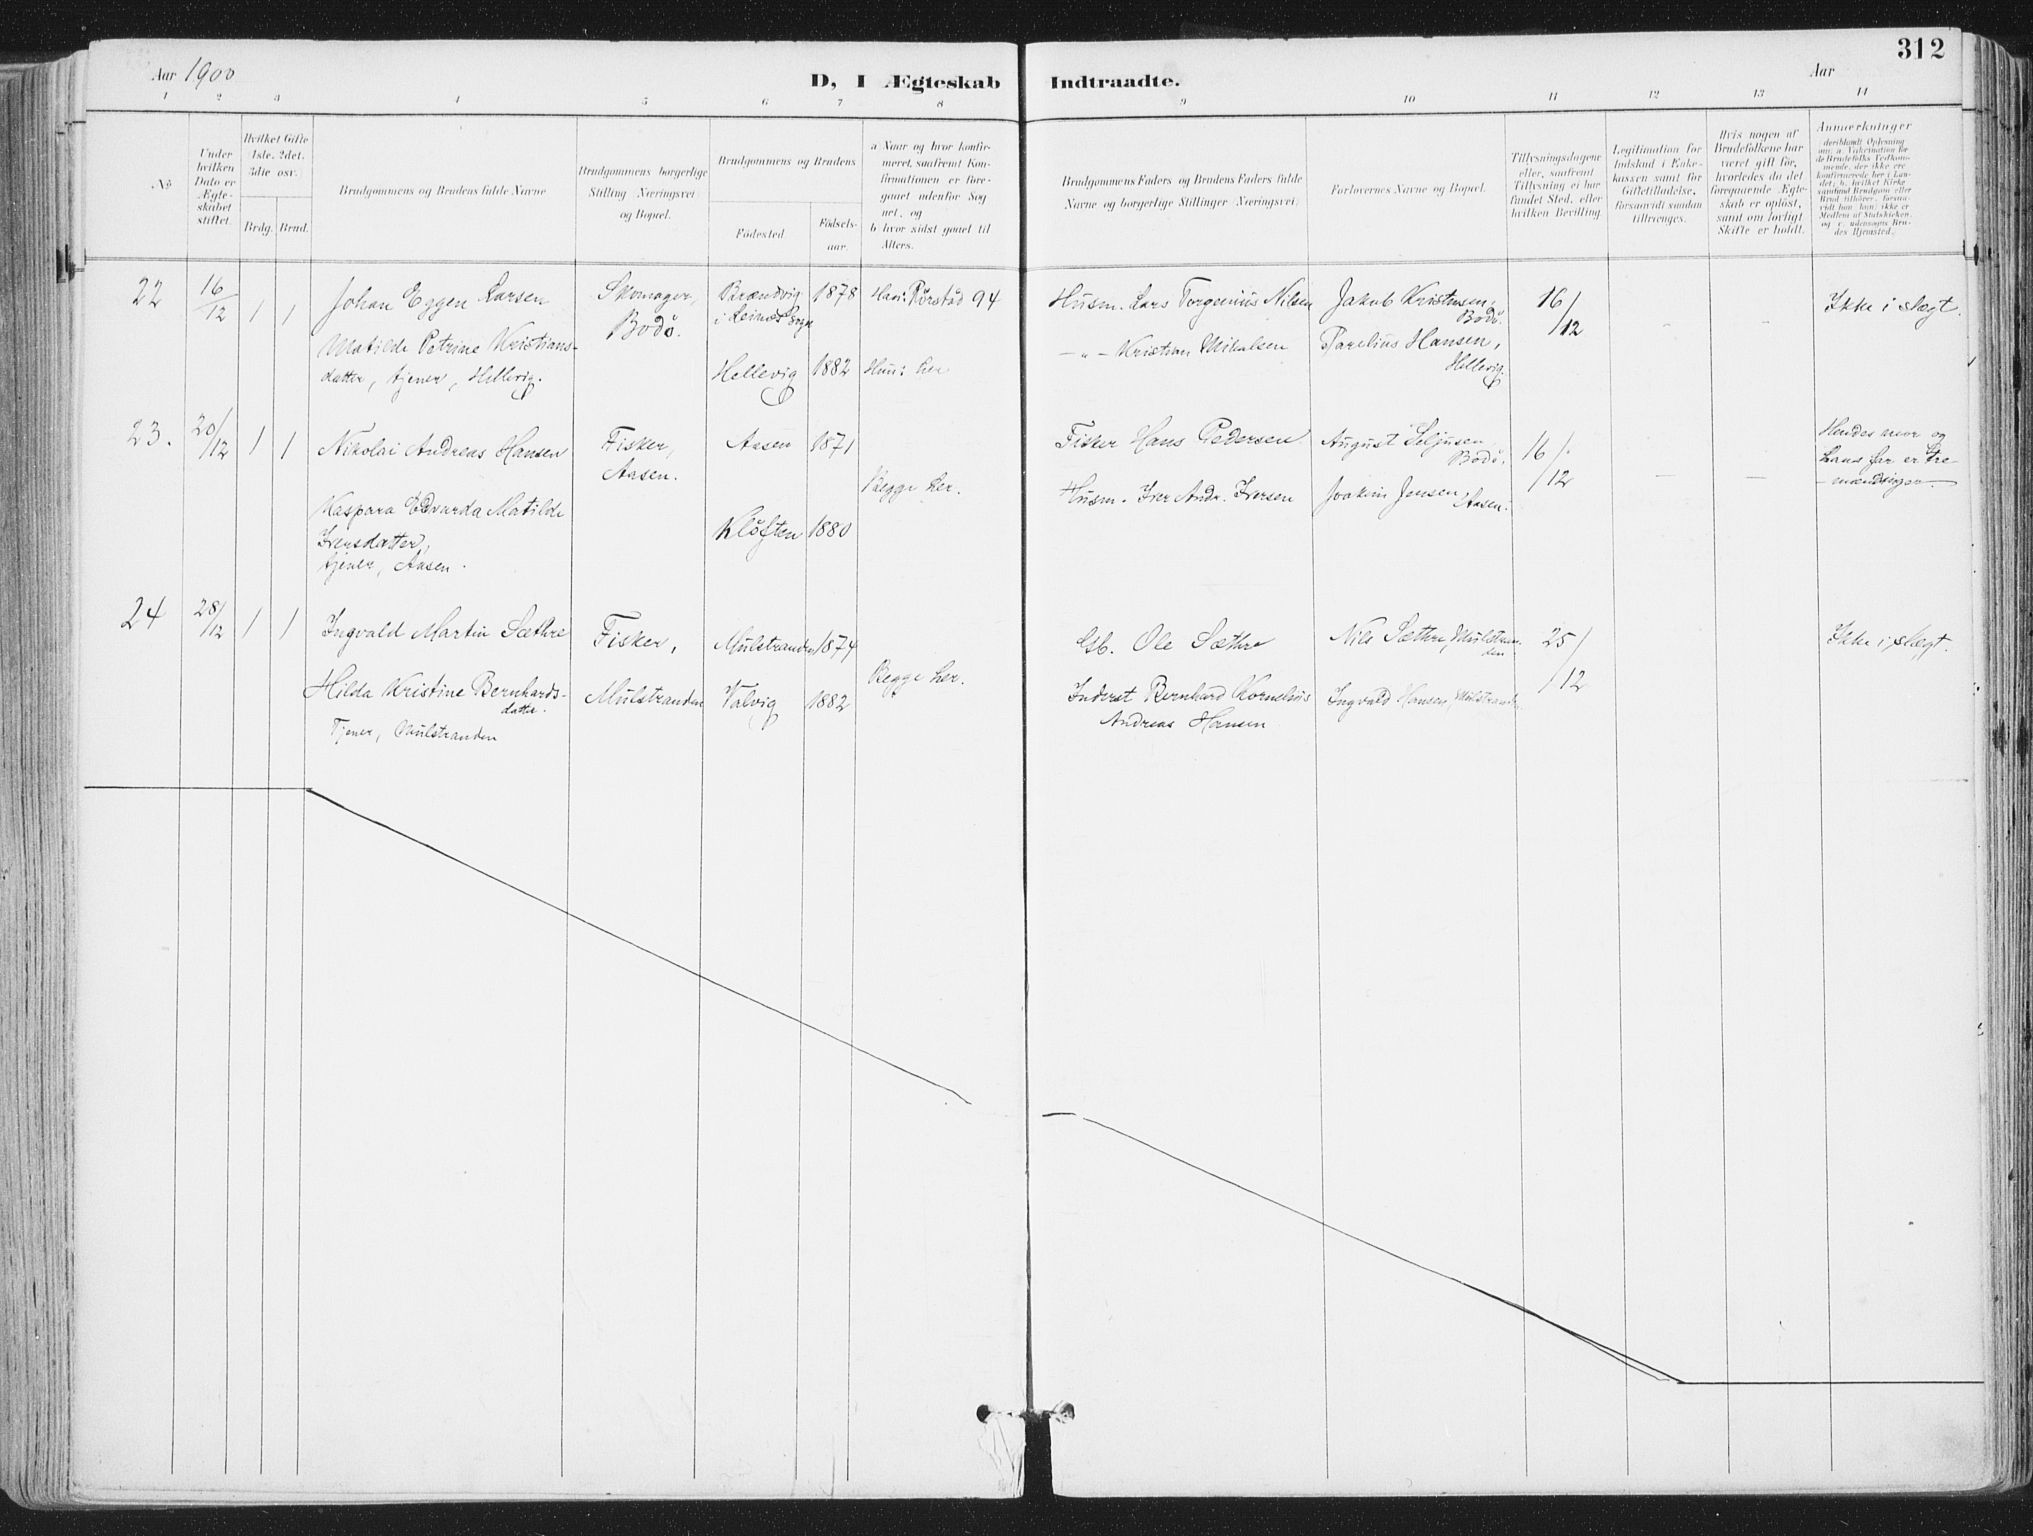 Aar 1900
D, I Ægteskab Indtraadte.
Aar
312
1 2 3 4 5 6 7 8 9 10 11 12 13 14
No
Under
hvilken
Dato er
Ægte-
skabet
stiftet.
Hvilket Gifte
1ste. 2det.
3die osv.
Brdg. Brud.
Brudgommens og Brudens fulde Navne
Brudgommens borgerlige
Stilling Næringsvei
og Bopæl.
Brudgommens og Brudens
Fødested.
Fødsels-
aar.
a Naar og hvor konfir-
meret, saafremt Kon-
firmationen er fore-
gaaet udenfor Sog
net, og
b hvor sidst gaaet til
Alters.
Brudgommens Faders og Brudens Faders fulde
Navne og borgerlige Stillinger Næringsvei.
Forlovernes Navne og Bopæl.
Tillysningsdagene
eller, saafremt
Tillysning ei har
fundet Sted, efter
hvilken Bevilling.
Legitimation for
Indskud i Enke-
kassen samt for
Giftetilladelse,
forsaavidt saadan
tiltrænges.
Hvis nogen af
Brudefolkene har
været gift før,
hvorledes da det
foregaaende Ægte-
skab er opløst,
samt om lovligt
Skifte er holdt.
Anmærkninger
22
16/12
1 1
Johan Eggen Larsen
Matilde Petrine Kristians-
datter, tjener, Hellevig.
Skomager,
Bodö.
Brændvig
i Leines Sogn
1878
Hellevig 1882
Han: Rörstad 94
Hun: her
Husm. Lars Torgenius Nilsen
— " — Kristian Mikalsen
Jakob Kristensen,
Bodö.
Parelius Hansen,
Hellevig.
16/12
Ikke i slægt.
23.
20/12
1 1
Nikolai Andreas Hansen
Kaspara Edvarda Matilde
Iversdatter,
tjener, Aasen.
Fisker,
Aasen.
Aasen 1871
Klöften 1880
Begge her.
Fisker Hans Pedersen
Husm. Iver Andr. Iversen
August Seljusen,
Bodö.
Joakim Jensen, Aasen.
16/12
Hendes mor og
hans far er tre-
mændinger.
24
28/12
1 1
Ingvald Martin Sæthre
Hilda Kristine Bernhards-
datter.
Tjener, Mulstranden
Fisker,
Mulstranden
Mulstranden 1874
Valvig 1882
Begge her.
Gb. Ole Sæthre
Inderst Bernhard Kornelius
Andreas Hansen
Nils Sæthre, Mulstran-
den
Ingvald Hansen, Mulstranden
25/12
Ikke i slægt.